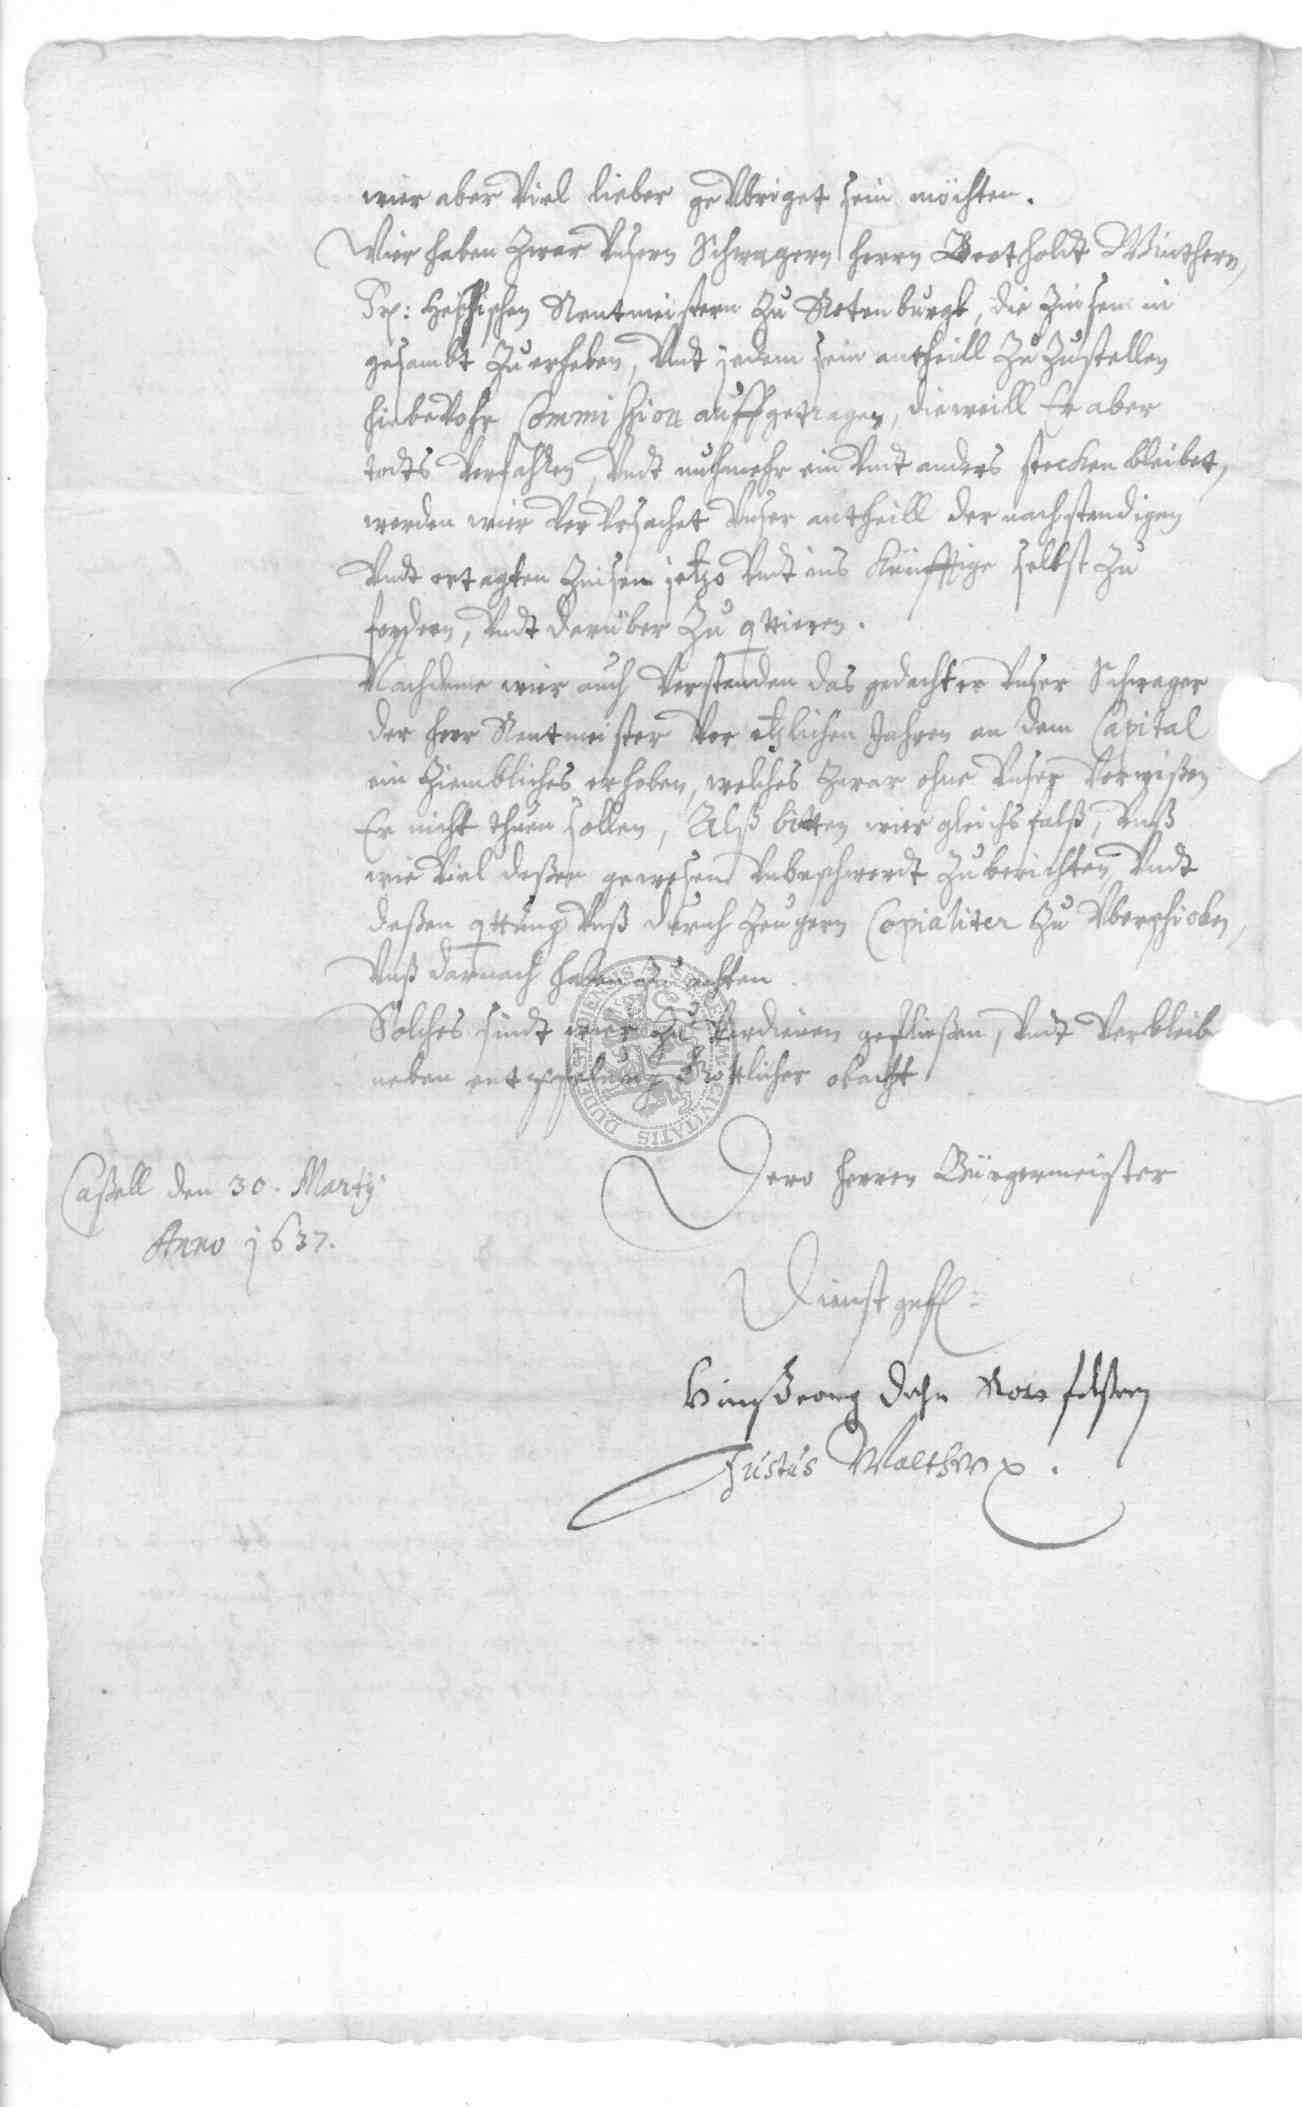 wier aber Viel lieber geVbriget sein möchten.
Wier haben Zwar Vnsern Schwagern herrn Bertholdt Winthern,
Heßischen Rentmeistern Zu Rotenburgk, die Zinsen in
gesambt Zu erheben, Vndt jedem sein antheill Zu Zustellen
hiebeVohr Commißion auffgetragen, dieweill Er aber
todts Verfahlen, Vndt nuhmehr ein Vndt anders stecken bleibet,
werden wier VerVrsachet Vnser antheill der nachstendigen
Vndt ertagten Zinsen jetzo Vndt ins Künfftige selbst Zu
fordern, Vndt darüber Zu qttieren.
Nachdeme wier auch Verstanden das gedachter Vnser Schwager
der herr Rentmeister Vor etzlichen Jahren an dem Capital
ein Ziembliches erhoben, welches Zwar ohne Vnser Vorwißen
Er nicht thuen sollen, Alß bitten wier gleichsfalß, Vnß
wie Viel deßen gewesen Vnbeschwerdt Zu berichten, Vndt
deßen qttung Vnß durch Zeugern Copialiter Zu Vberschicken,
Vnß darnach haben Zu achten
Solches sindt wier Zu Verdienen gefließen, Vndt Verbleibe
neben entpfelung Göttlicher obacht
Dero herren Bürgermeister
Caßell den 30. Martij
Anno 1637.
Dienstgefl:
Justus Walther
SIGILLUM CIVITATIS DUDERSTADIENSIS